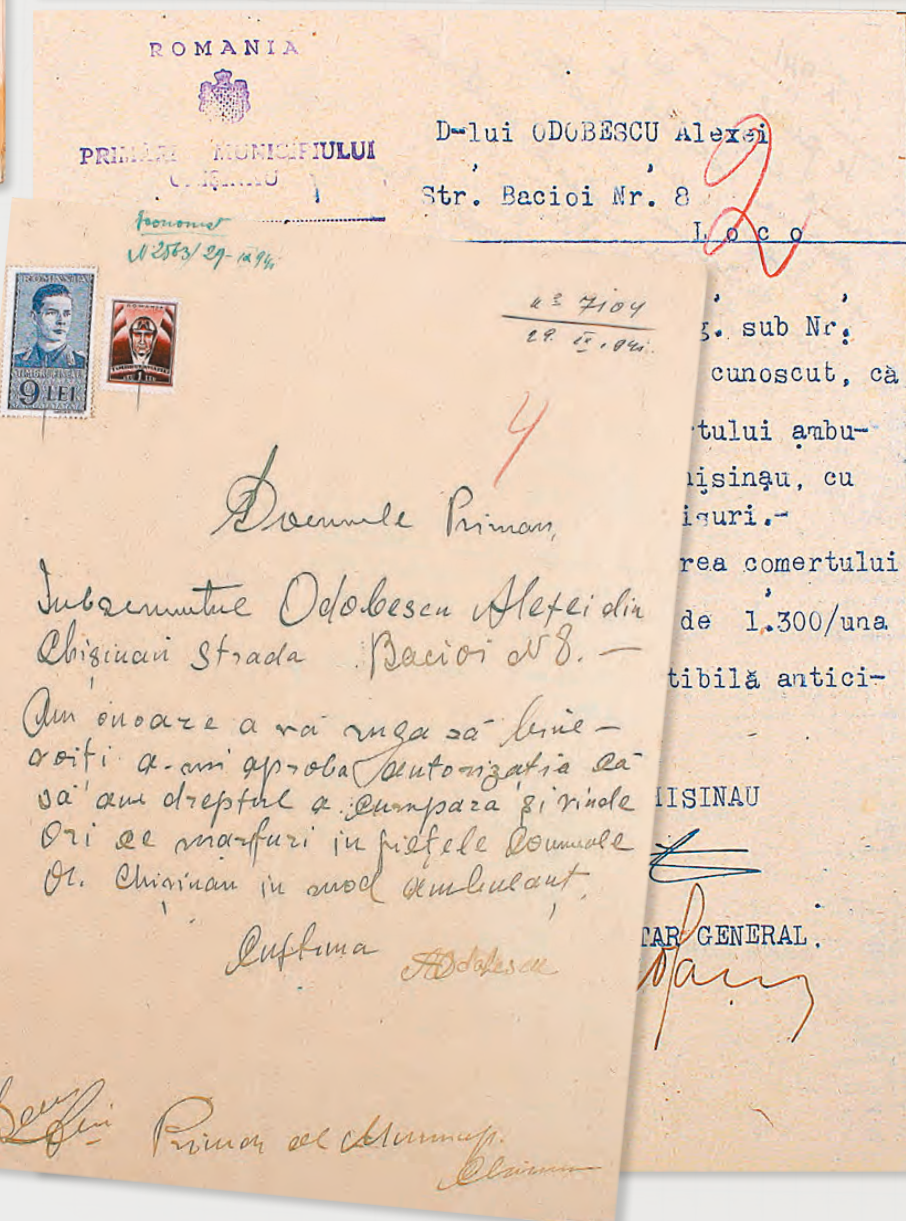 ROMANIA
MUNICIPIULUI
D-lui ODOBESCU Alexei
Str. Bacioi Nr. 8
Loco
2
g. sub Nr.
cunoscut, că
tului ambu-
hișinău, cu
isuri.-
rea comerțului
de 1.300/una
tibilă antici-
IȘINAU
TAR GENERAL.
Economat
N 2563/29-IX 941
ROMANIA
9 LEI
ROMANIA
1 LEU
№ 7104
29. IX. 941.
4
Domnule Primar,
Subsemnatul Odobescu Alexei din
Chișinău Strada Bacioi N 8. —
Am onoare a vă ruga să bine-
voiți a-mi aproba autorizația ca
să am dreptul a cumpara și vinde
Ori ce marfuri in piețele Comunale
Or. Chișinau in mod ambulant.
Cu stima AOdobescu
Primar al Municip.